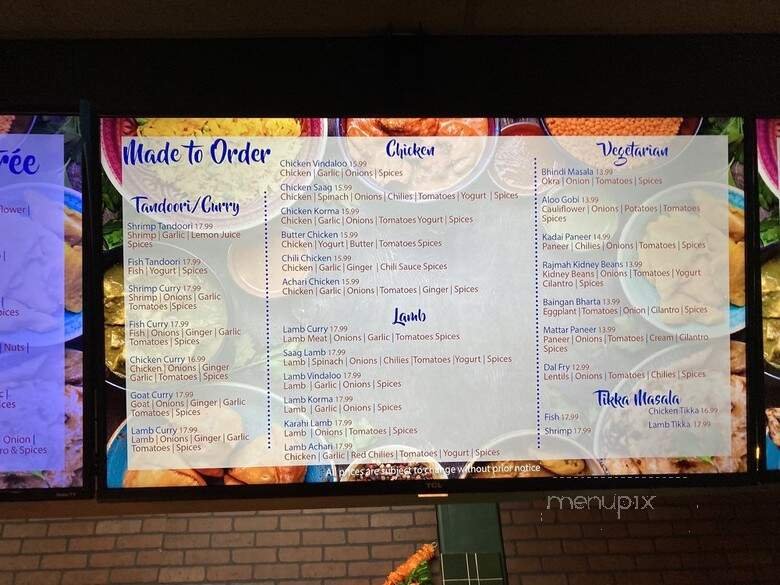 rée
flower |
ices
Nuts |
ces
Onion |
ro & Spices
Made to Order
Tandoori/Curry
Shrimp Tandoori 17.99
Shrimp | Garlic | Lemon Juice
Spices
Fish Tandoori 17.99
Fish | Yogurt | Spices
Shrimp Curry 17.99
Shrimp | Onions | Garlic
Tomatoes | Spices
Fish Curry 17.99
Fish | Onions | Ginger | Garlic
Tomatoes | Spices
Chicken Curry 16.99
Chicken | Onions | Ginger
Garlic | Tomatoes | Spices
Goat Curry 17.99
Goat | Onions | Ginger | Garlic
Tomatoes | Spices
Lamb Curry 17.99
Lamb | Onions | Ginger | Garlic
Tomatoes | Spices
Chicken
Chicken Vindaloo 15.99
Chicken | Garlic | Onions | Spices
Chicken Saag 15.99
Chicken | Spinach | Onions | Chilies | Tomatoes | Yogurt | Spices
Chicken Korma 15.99
Chicken | Garlic | Onions | Tomatoes Yogurt | Spices
Butter Chicken 15.99
Chicken | Yogurt | Butter | Tomatoes Spices
Chili Chicken 15.99
Chicken | Garlic | Ginger | Chili Sauce Spices
Achari Chicken 15.99
Chicken | Garlic | Onions | Tomatoes | Ginger | Spices
Lamb
Lamb Curry 17.99
Lamb Meat | Onions | Garlic | Tomatoes Spices
Saag Lamb 17.99
Lamb | Spinach | Onions | Chilies | Tomatoes | Yogurt | Spices
Lamb Vindaloo 17.99
Lamb | Garlic | Onions | Spices
Lamb Korma 17.99
Lamb | Garlic | Onions | Spices
Karahi Lamb 17.99
Lamb | Onions | Tomatoes | Spices
Lamb Achari 17.99
Chicken | Garlic | Red Chilies | Tomatoes | Yogurt | Spices
Vegetarian
Bhindi Masala 13.99
Okra | Onion | Tomatoes | Spices
Aloo Gobi 13.99
Cauliflower | Onions | Potatoes | Tomatoes
Spices
Kadai Paneer 14.99
Paneer | Chilies | Onions | Tomatoes | Spices
Rajmah Kidney Beans 13.99
Kidney Beans | Onions | Tomatoes | Yogurt
Cilantro | Spices
Baingan Bharta 13.99
Eggplant | Tomatoes | Onion | Cilantro | Spices
Mattar Paneer 13.99
Paneer | Onions | Tomatoes | Cream | Cilantro
Spices
Dal Fry 12.99
Lentils | Onions | Tomatoes | Chilies | Spices
Tikka Masala
Fish 17.99
Shrimp 17.99
Chicken Tikka 16.99
Lamb Tikka 17.99
All prices are subject to change without prior notice
TCL
menupix